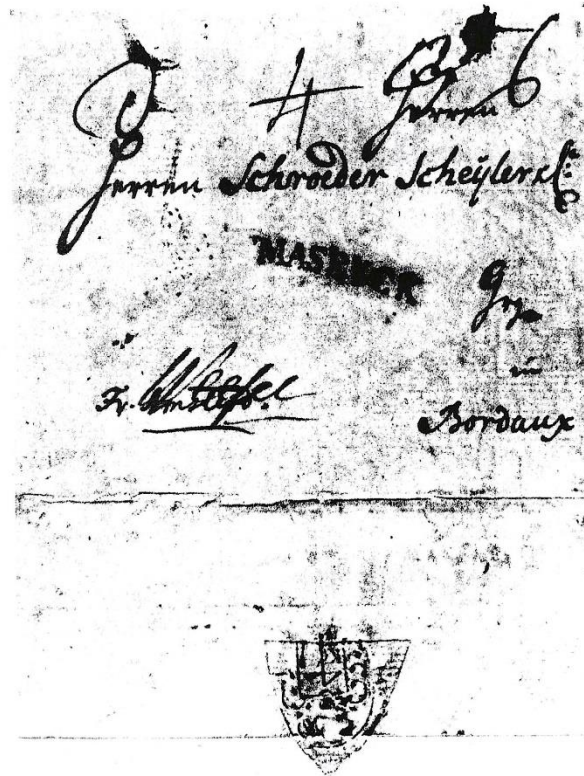 4 Herren
Herren Schroeder Scheÿler & C:
MASEYCK
in
Fr. Wesel
Bordaux